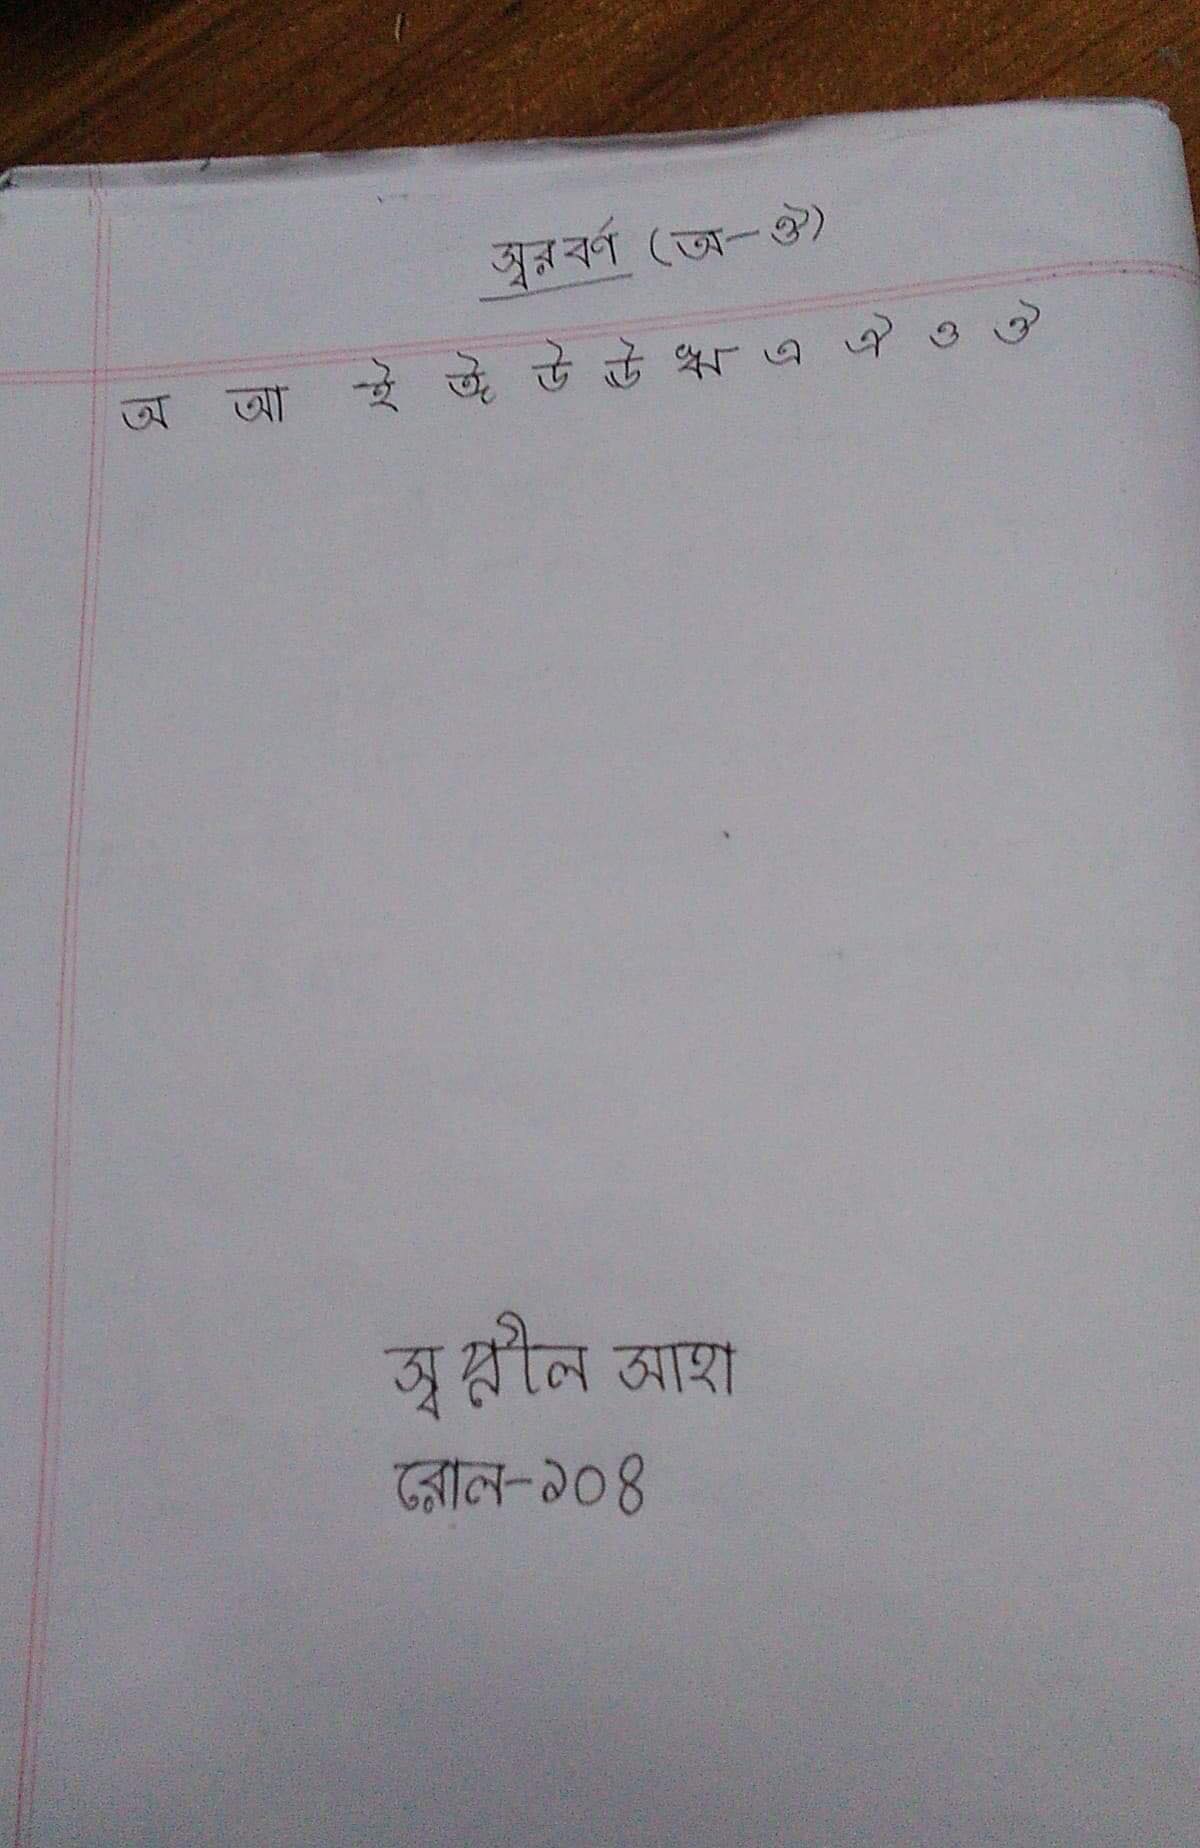 স্বরবর্ণ (অ-ঔ)
অ আ ই ঈ উ ঊ ঋ এ ঐ ও ঔ
স্বপ্নীল সাহা
রোল-১০৪